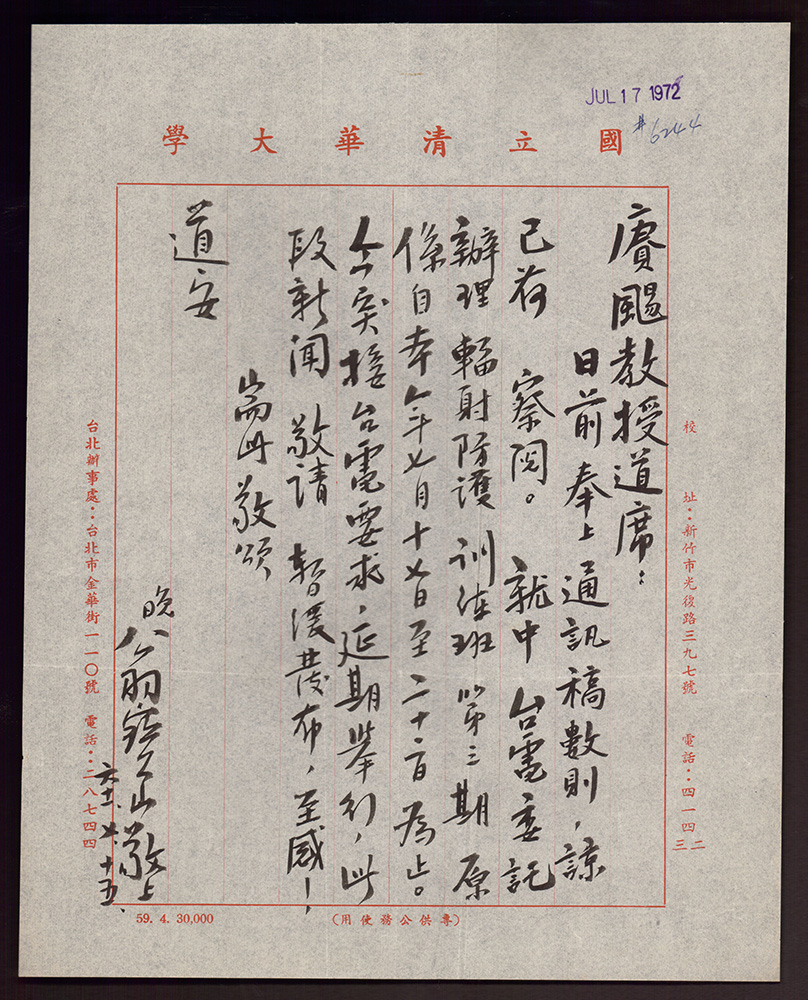 JUL 17 1972
#6244
國立清華大學
校　址：新竹市光復路三九七號　電話：四一四二三
賡颺教授道席：
日前奉上通訊稿數則，諒
已荷　察閱。就中台電委託
辦理輻射防護訓練班第三期原
係自本年七月十七日至二十一日為止。
今突接台電要求，延期舉行，此
段新聞敬請暫緩發布，至感！
耑此敬頌
道安
晚翁寶山敬上
六十一、七、十五、
台北辦事處：台北市金華街一一〇號　電話：二八七四四
59. 4. 30,000
（專供公務使用）